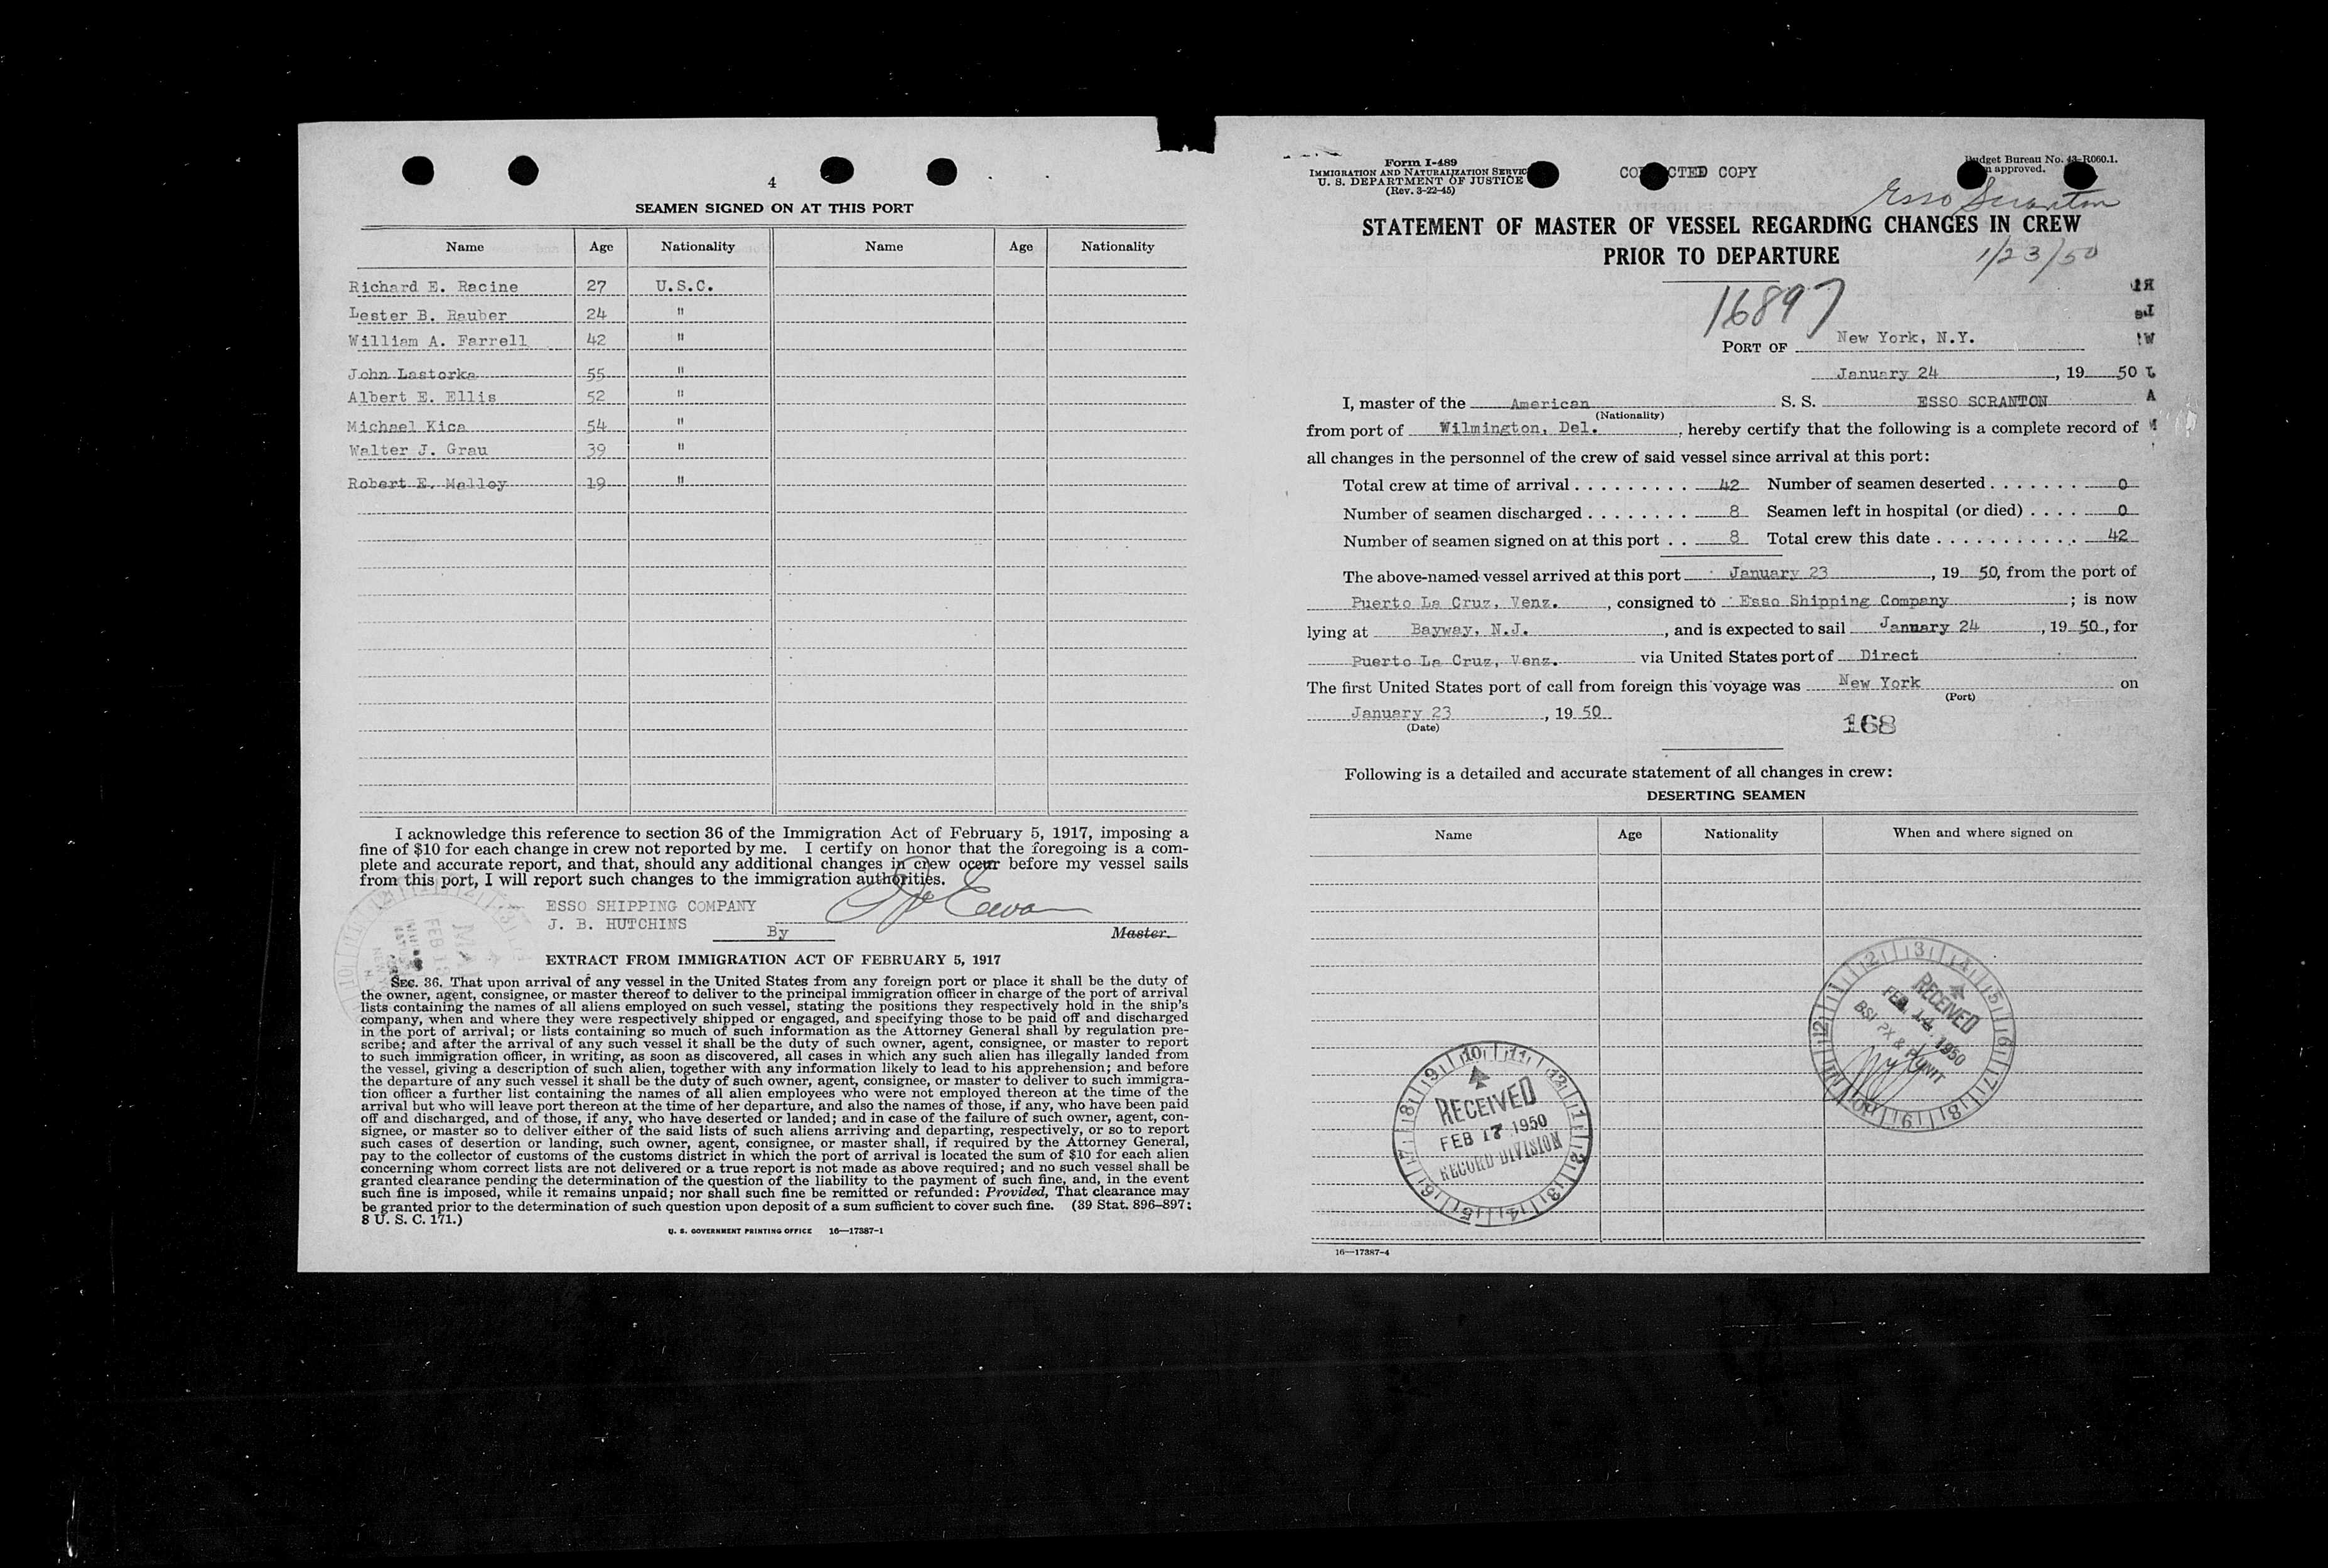 4
SEAMEN SIGNED ON AT THIS PORT
Name Age Nationality Name Age Nationality
Richard E. Racine 27 U.S.C.
Lester B. Rauber 24 "
William A. Farrell 42 "
John Lastorka 55 "
Albert E. Ellis 52 "
Michael Kica 54 "
Walter J. Grau 39 "
Robert E. Malloy 19 "
I acknowledge this reference to section 36 of the Immigration Act of February 5, 1917, imposing a
fine of $10 for each change in crew not reported by me. I certify on honor that the foregoing is a com-
plete and accurate report, and that, should any additional changes in crew occur before my vessel sails
from this port, I will report such changes to the immigration authorities.
ESSO SHIPPING COMPANY
J. B. HUTCHINS By Master.
EXTRACT FROM IMMIGRATION ACT OF FEBRUARY 5, 1917
SEC. 36. That upon arrival of any vessel in the United States from any foreign port or place it shall be the duty of
the owner, agent, consignee, or master thereof to deliver to the principal immigration officer in charge of the port of arrival
lists containing the names of all aliens employed on such vessel, stating the positions they respectively hold in the ship's
company, when and where they were respectively shipped or engaged, and specifying those to be paid off and discharged
in the port of arrival; or lists containing so much of such information as the Attorney General shall by regulation pre-
scribe; and after the arrival of any such vessel it shall be the duty of such owner, agent, consignee, or master to report
to such immigration officer, in writing, as soon as discovered, all cases in which any such alien has illegally landed from
the vessel, giving a description of such alien, together with any information likely to lead to his apprehension; and before
the departure of any such vessel it shall be the duty of such owner, agent, consignee, or master to deliver to such immigra-
tion officer a further list containing the names of all alien employees who were not employed thereon at the time of the
arrival but who will leave port thereon at the time of her departure, and also the names of those, if any, who have been paid
off and discharged, and of those, if any, who have deserted or landed; and in case of the failure of such owner, agent, con-
signee, or master so to deliver either of the said lists of such aliens arriving and departing, respectively, or so to report
such cases of desertion or landing, such owner, agent, consignee, or master shall, if required by the Attorney General,
pay to the collector of customs of the customs district in which the port of arrival is located the sum of $10 for each alien
concerning whom correct lists are not delivered or a true report is not made as above required; and no such vessel shall be
granted clearance pending the determination of the question of the liability to the payment of such fine, and, in the event
such fine is imposed, while it remains unpaid; nor shall such fine be remitted or refunded: Provided, That clearance may
be granted prior to the determination of such question upon deposit of a sum sufficient to cover such fine. (39 Stat. 896–897;
8 U. S. C. 171.)
U. S. GOVERNMENT PRINTING OFFICE 16—17387-1
Form I-489
IMMIGRATION AND NATURALIZATION SERVIC
U. S. DEPARTMENT OF JUSTICE
(Rev. 3-22-45)
CO CTED COPY
dget Bureau No. 43-R060.1.
approved.
Esso Scranton
STATEMENT OF MASTER OF VESSEL REGARDING CHANGES IN CREW
PRIOR TO DEPARTURE
1/23/50
16897
PORT OF New York, N.Y.
January 24, 19 50
I, master of the American S. S. ESSO SCRANTON
(Nationality)
from port of Wilmington, Del., hereby certify that the following is a complete record of
all changes in the personnel of the crew of said vessel since arrival at this port:
Total crew at time of arrival . . . . . . . . . . 42 Number of seamen deserted . . . . . . . 0
Number of seamen discharged . . . . . . . . 8 Seamen left in hospital (or died) . . . . 0
Number of seamen signed on at this port . . 8 Total crew this date . . . . . . . . . . . . 42
The above-named vessel arrived at this port January 23, 19 50, from the port of
Puerto La Cruz, Venz., consigned to Esso Shipping Company; is now
lying at Bayway, N.J., and is expected to sail January 24, 19 50, for
Puerto La Cruz, Venz. via United States port of Direct
The first United States port of call from foreign this voyage was New York on
(Port)
January 23, 19 50.
(Date)
168
Following is a detailed and accurate statement of all changes in crew:
DESERTING SEAMEN
Name Age Nationality When and where signed on
RECEIVED
FEB 14 1950
BSI PX & P UNIT
RECEIVED
FEB 17 1950
RECORD DIVISION
16—17387-4